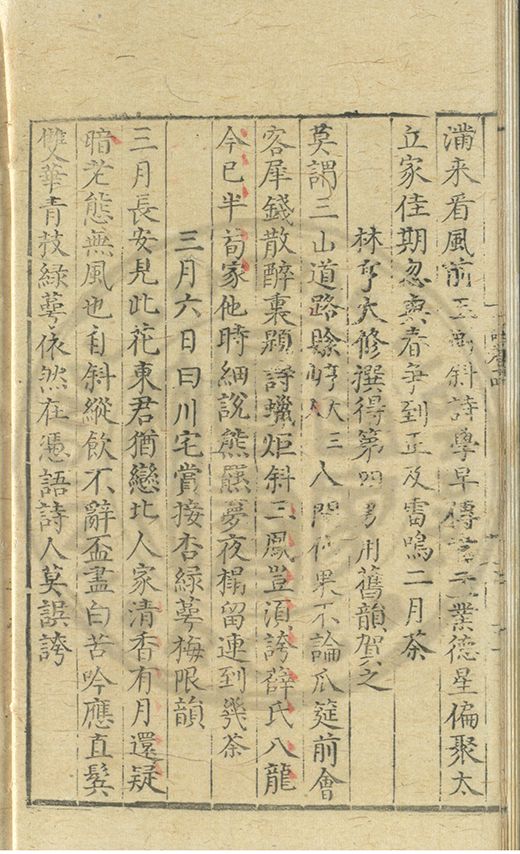 滿來看風前玉斜詩學早傳業德星偏聚太
立家佳期忽與春爭到正及雷鳴二月茶
林亨大修撰得第四男用舊韻賀之
莫謂三山道路賖三人間果不論瓜筵前會
客犀錢散醉裏題詩蠟炬斜三鳳豈須誇薛氏八龍
今已半荀家他時細說熊羆夢夜榻留連到幾茶
三月六日曰川宅賞接杏綠萼梅限韻
三月長安見此花東君猶戀北人家清香有月還疑
暗老態無風也自斜縱飲不辭盃盡白苦吟應直鬂
雙華青枝綠萼依然在憑語詩人莫誤誇